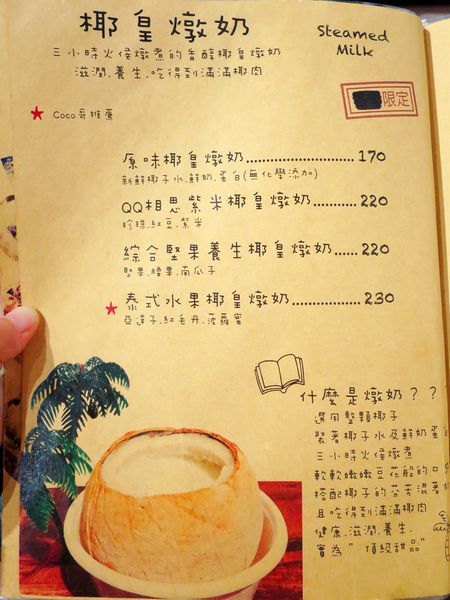 椰皇燉奶
Steamed Milk
三小時火侯燉煮的香醇椰皇燉奶
滋潤.養生.吃得到滿滿椰肉
限定
★ Coco哥推薦
原味椰皇燉奶 170
新鮮椰子水.鮮奶.蛋白(無化學添加)
QQ相思紫米椰皇燉奶 220
珍珠.紅豆.紫米
綜合堅果養生椰皇燉奶 220
堅果.腰果.南瓜子
★ 泰式水果椰皇燉奶 230
亞達子.紅毛丹.菠蘿蜜
什麼是燉奶??
選用整顆椰子
裝著椰子水及鮮奶蛋
三小時火侯燉煮
軟軟嫩嫩豆花般的
搭配椰子的芬芳混著
且吃得到滿滿椰肉
健康.滋潤.養生.
實為"頂級甜品"